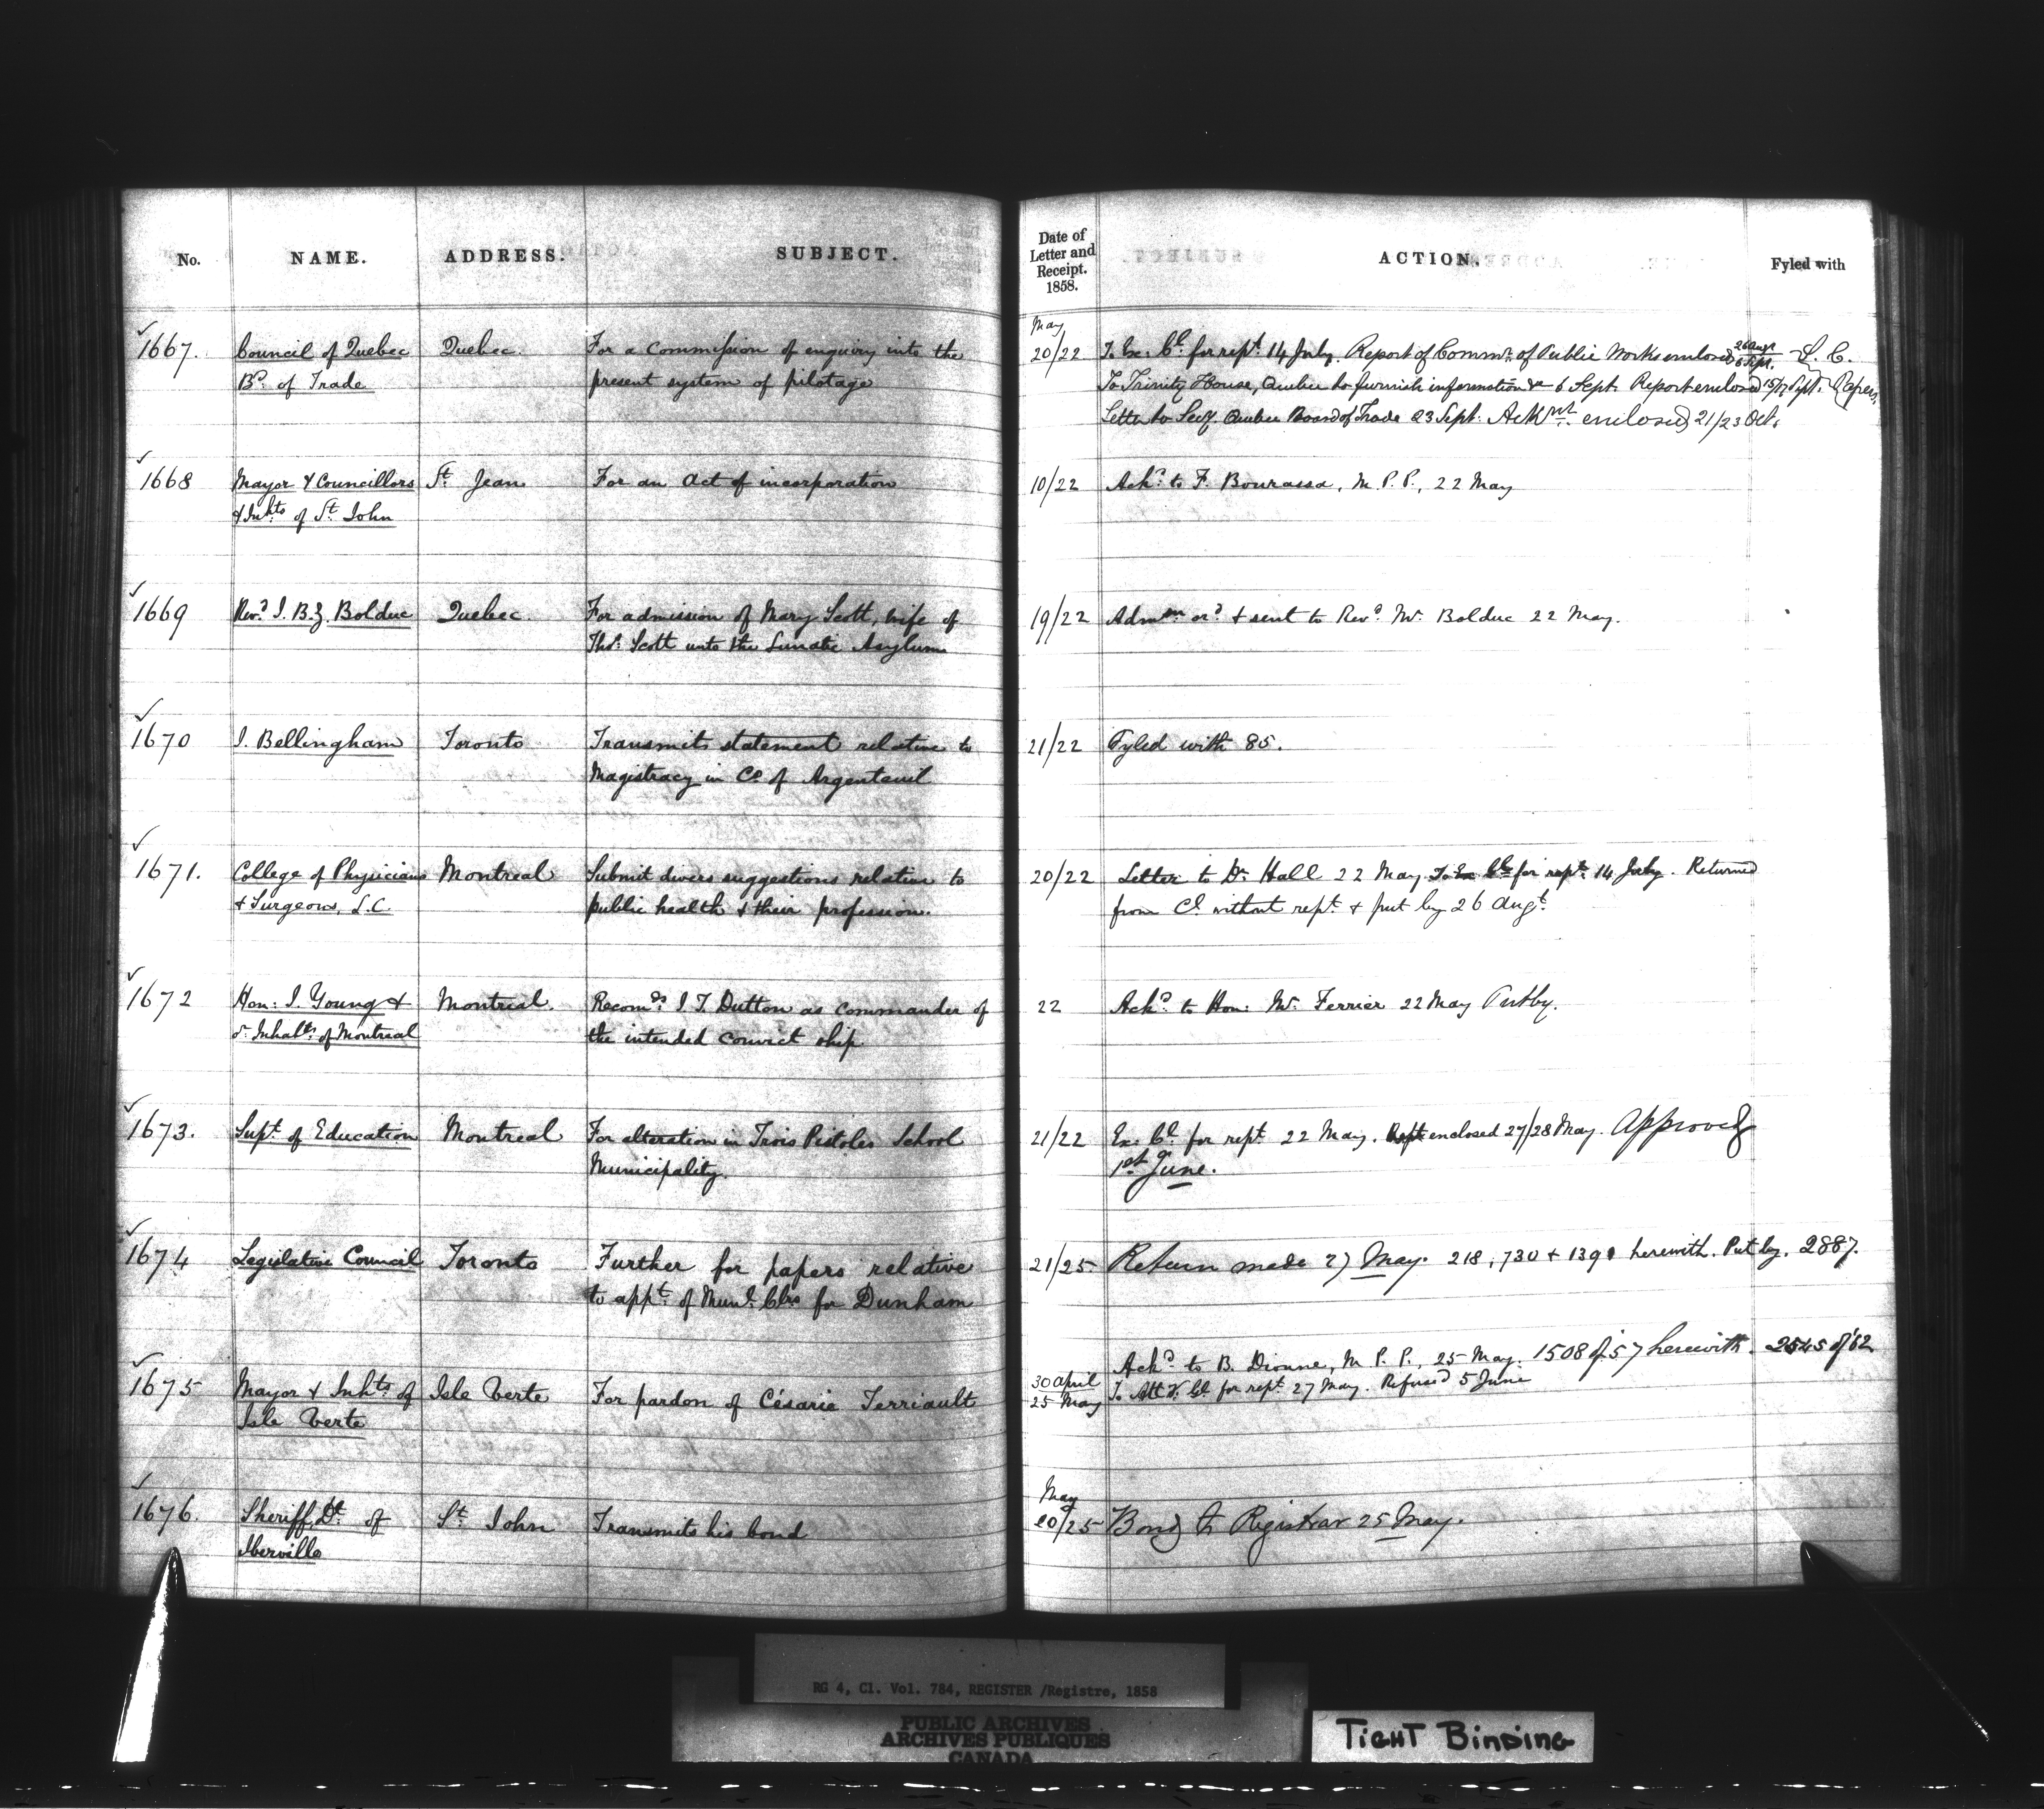 No. NAME. ADDRESS. SUBJECT.
Date of Letter and Receipt. 1858. ACTION. Fyled with
1667. Council of Quebec Quebec. For a Commission of enquiry into the
Bd. of Trade present system of pilotage
May
20/22 To Ex. Cl. for rept. 14 July. Report of Commrs. of Public Works enclosed 26 Augt 6 Sept. L. C.
To Trinity House, Quebec to furnish information &c 6 Sept. Report enclosed 15/17 Sept. Papers
Letter to Secy. Quebec Board of Trade 23 Sept. Ackmt. enclosed 21/23 Oct.
1668 Mayor & Councillors St. Jean For an Act of incorporation
& Inhts of St. John
10/22 Ackd. to F. Bourassa, M.P.P., 22 May
1669 Revd. J. B. Z. Bolduc Quebec. For admission of Mary Scott, wife of
Thos. Scott into the Lunatic Asylum
19/22 Admn. ord. & sent to Revd. Mr. Bolduc 22 May.
1670 J. Bellingham Toronto Transmits statement relative to
Magistracy in Co. of Argenteuil
21/22 Fyled with 85.
1671. College of Physicians Montreal Submit divers suggestions relative to
& Surgeons, L.C. public health & their profession.
20/22 Letter to Dr. Hall 22 May To Ex Cl. for rept. 14 July. Returned
from Cl. without rept. & put by 26 Augt.
1672 Hon: J. Young & Montreal. Recomds. J. T. Dutton as commander of
or. Inhabts. of Montreal the intended convict ship
22 Ackd. to Hon: Mr. Ferrier 22 May Putby.
1673. Supt. of Education Montreal For alteration in Trois Pistoles School
Municipality.
21/22 Ex. Cl. for rept. 22 May. Rept enclosed 27/28 May. Approved
1st June.
1674 Legislative Council Toronto Further for papers relative
to appt. of Munl. Clrs for Dunham
21/25 Return made 27 May. 218, 730 & 1391 herewith. Put by. 2887.
1675 Mayor & Inhts of Isle Verte For pardon of Césarie Terriault
Isle Verte
Ackd. to B. Dionne, M.P.P., 25 May. 1508 of 57 herewith. 2545 of '62
30 April
25 May To Att. Gl. for rept. 27 May. Refused 5 June
1676. Sheriff, Dt. of St. John Transmits his bond
Iberville
May
20/25 Bond to Registrar 25 May.
RG 4, Cl. Vol. 784, REGISTER /Registre, 1858
PUBLIC ARCHIVES
ARCHIVES PUBLIQUES
CANADA
TIGHT BINDING